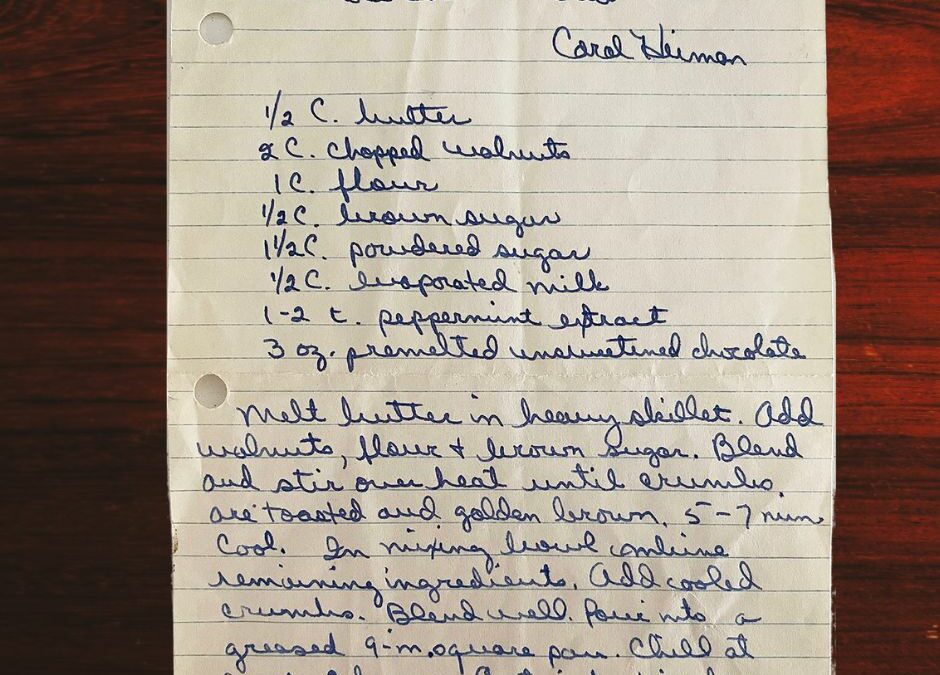 Carol Heiman
1/2 C. butter
2 C. chopped walnuts
1 C. flour
1/2 C. brown sugar
1 1/2 C. powdered sugar
1/2 C. evaporated milk
1-2 t. peppermint extract
3 oz. premelted unsweetened chocolate
Melt butter in heavy skillet. Add
walnuts, flour & brown sugar. Blend
and stir over heat until crumbs
are toasted and golden brown. 5-7 min.
Cool. In mixing bowl combine
remaining ingredients. Add cooled
crumbs. Blend well. Pour into a
greased 9-in. square pan. Chill at